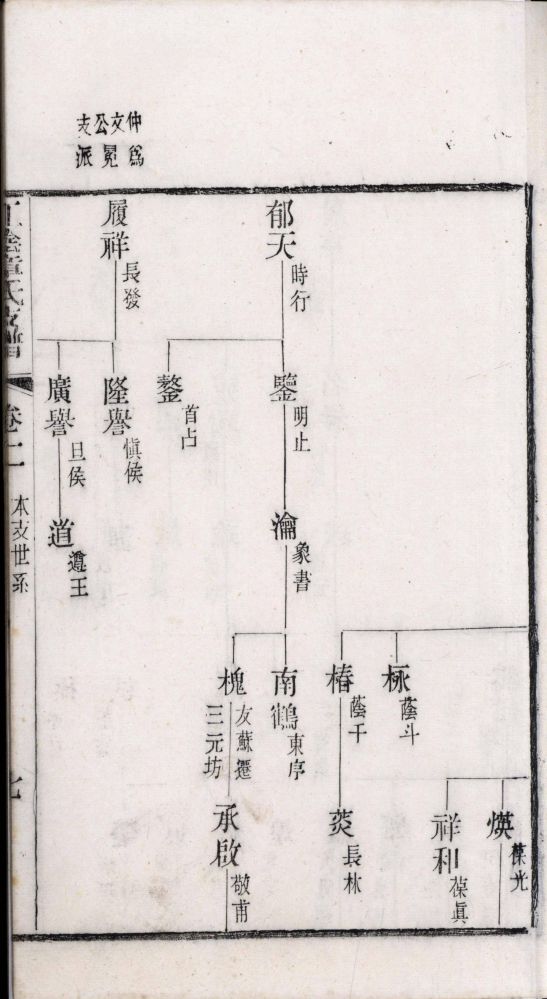 仲文公支
爲冕派
郁天
時行
履祥
長發
鑒
明止
鏊
首占
隆譽
慎侯
廣譽
旦侯
瀹
象書
道
遵王
柡
蔭斗
椿
蔭千
南鶴
東序
槐
友蘇遷
三元坊
煐
葆光
祥和
葆眞
煐
長林
承啟
敬甫
江陰章氏支譜
本支世系
七